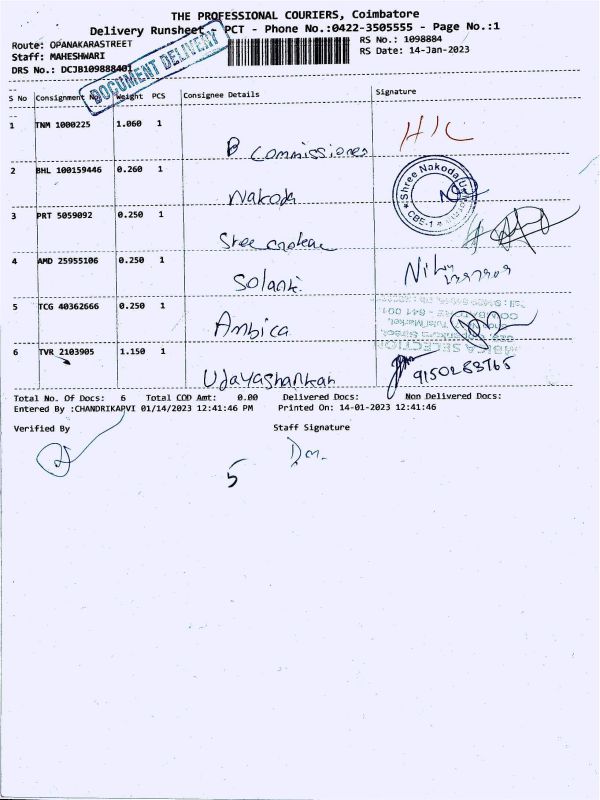 THE PROFESSIONAL COURIERS, Coimbatore
Delivery Runsheet - PCT - Phone No.:0422-3505555 - Page No.:1
Route: OPANAKARASTREET
RS No.: 1098884
Staff: MAHESHWARI
RS Date: 14-Jan-2023
DRS No.: DCJB109888401
DOCUMENT DELIVERY
S No Consignment No Weight PCS Consignee Details Signature
1 TNM 1000225 1.060 1 B Commissioner H/C
2 BHL 100159446 0.260 1 Nakoda
Shree Nakoda
CBE-1
3 PRT 5059092 0.250 1 Sree
4 AMD 25955106 0.250 1 Solanki
5 TCG 40362666 0.250 1 Ambica
COIMBATORE - 641 001
AMBICA SELECTION
6 TVR 2103905 1.150 1 Udayashankar 9150283765
Total No. Of Docs: 6 Total COD Amt: 0.00 Delivered Docs: Non Delivered Docs:
Entered By :CHANDRIKAPVI 01/14/2023 12:41:46 PM Printed On: 14-01-2023 12:41:46
Verified By Staff Signature
5